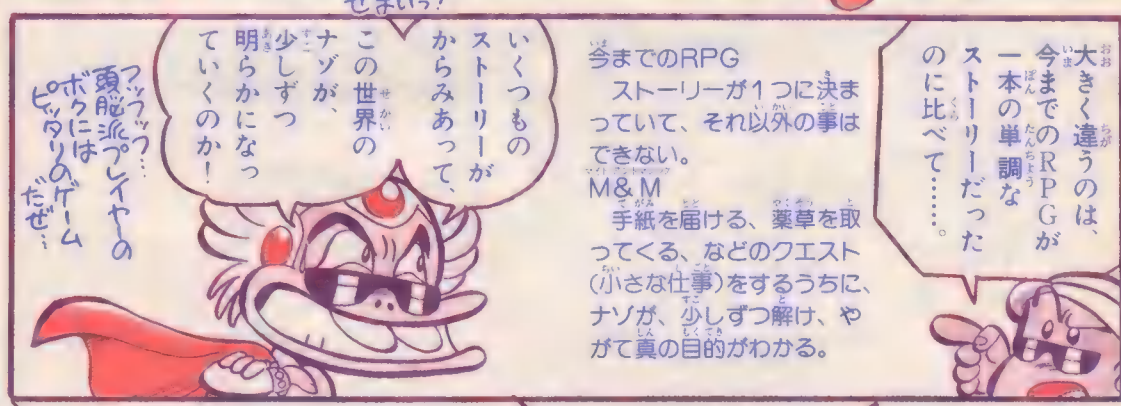 せまいっ!
大きく違うのは、
今までのRPGが
一本の単調な
ストーリーだった
のに比べて……。
今までのRPG
ストーリーが1つに決ま
っていて、それ以外の事は
できない。
M&M
手紙を届ける、薬草を取
ってくる、などのクエスト
(小さな仕事)をするうちに、
ナゾが、少しずつ解け、や
がて真の目的がわかる。
いくつもの
ストーリーが
からみあって、
この世界の
ナゾが、
少しずつ
明らかになっ
ていくのか!
フッフッフ…
頭脳派プレイヤーの
ボクには
ピッタリのゲーム
だぜ…